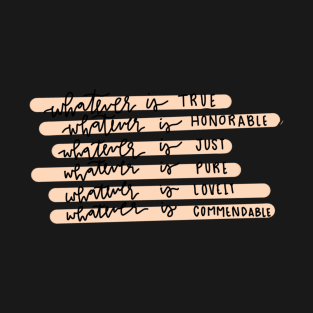 whatever is TRUE
whatever is HONORABLE
whatever is JUST
whatever is PURE
whatever is LOVELY
whatever is COMMENDABLE